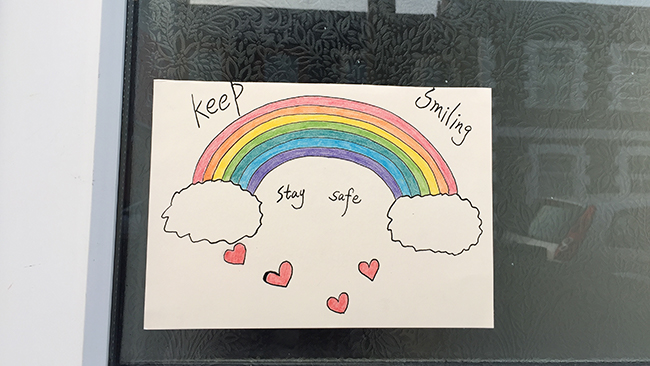 Keep Smiling
stay safe